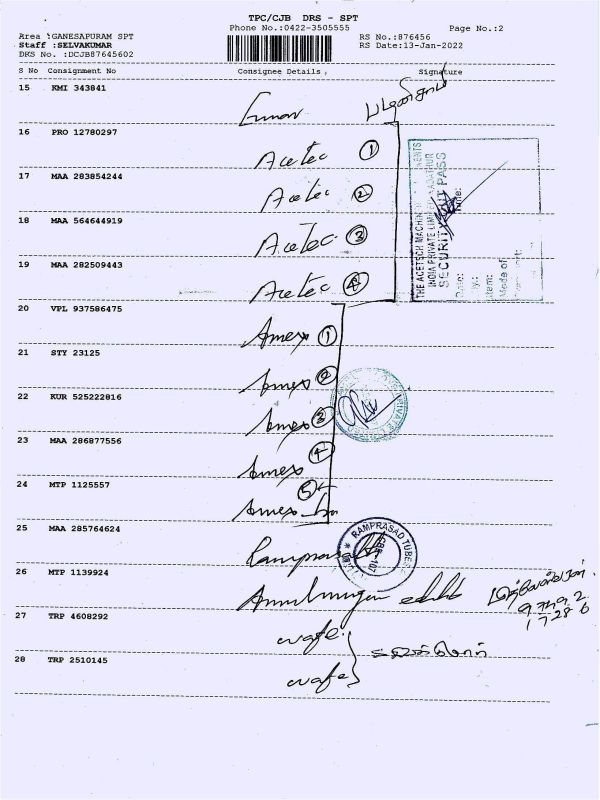 TPC/CJB DRS - SPT
Phone No.:0422-3505555 Page No.:2
Area :GANESAPURAM SPT RS No.:876456
Staff :SELVAKUMAR RS Date:13-Jan-2022
DRS No. :DCJB87645602
S No Consignment No Consignee Details, Signature
15 KMI 343841
16 PRO 12780297
Acetec ①
17 MAA 283854244
Acetec ②
18 MAA 564644919
Acetec ③
19 MAA 282509443
Acetec ④
THE ACETECH MACHINERY COMPONENTS
INDIA PRIVATE LIMITED
SECURITY OUT PASS
Date: Time:
Item:
Mode of
20 VPL 937586475
Amex ①
21 STY 23125
Amex ②
22 KUR 525222816
Amex ③
23 MAA 286877556
Amex ④
24 MTP 1125557
⑤
Amex
25 MAA 285764624
Ramprasad
RAMPRASAD TUBES
26 MTP 1139924
97492
17286
27 TRP 4608292
wafe
28 TRP 2510145
wafe